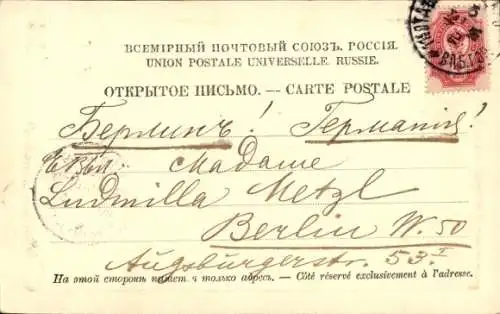 ВСЕМІРНЫЙ ПОЧТОВЫЙ СОЮЗЪ. РОССІЯ.
UNION POSTALE UNIVERSELLE. RUSSIE.
ОТКРЫТОЕ ПИСЬМО. — CARTE POSTALE
Берлинъ! Германія!
Madame
Ludmilla Metzl
Berlin W. 50
Augsburgerstr. 53 I
На этой сторонѣ пишется только адресъ. — Côté réservé exclusivement à l'adresse.